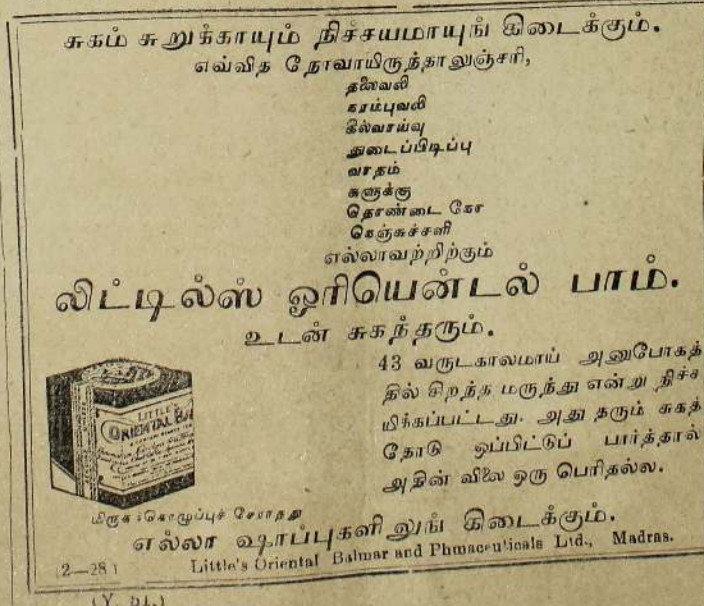 சுகம் சுறுக்காயும் நிச்சயமாயுங் கிடைக்கும்.
எவ்வித நோவாயிருந்தாலுஞ்சரி,
தலைவலி
கரம்புவலி
கீல்வாய்வு
துடைப்பிடிப்பு
வாதம்
சுளுக்கு
தொண்டை கோ
நெஞ்சுச்சளி
எல்லாவற்றிற்கும்
லிட்டில்ஸ் ஓரியென்டல் பாம்.
உடன் சுகந்தரும்.
43 வருடகாலமாய் அனுபோகத்
தில் சிறந்த மருந்து என்று நிச்ச
யிக்கப்பட்டது. அது தரும் சுகத்
தோடு ஒப்பிட்டுப் பார்த்தால்
அதின் விலை ஒரு பெரிதல்ல.
LITTLE'S
ORIENTAL BA
மிருக கொழுப்புச் சேராதது
எல்லா ஷாப்புகளிலுங் கிடைக்கும்.
2—28) Little's Oriental Balmar and Phmaceuticals Ltd., Madras.